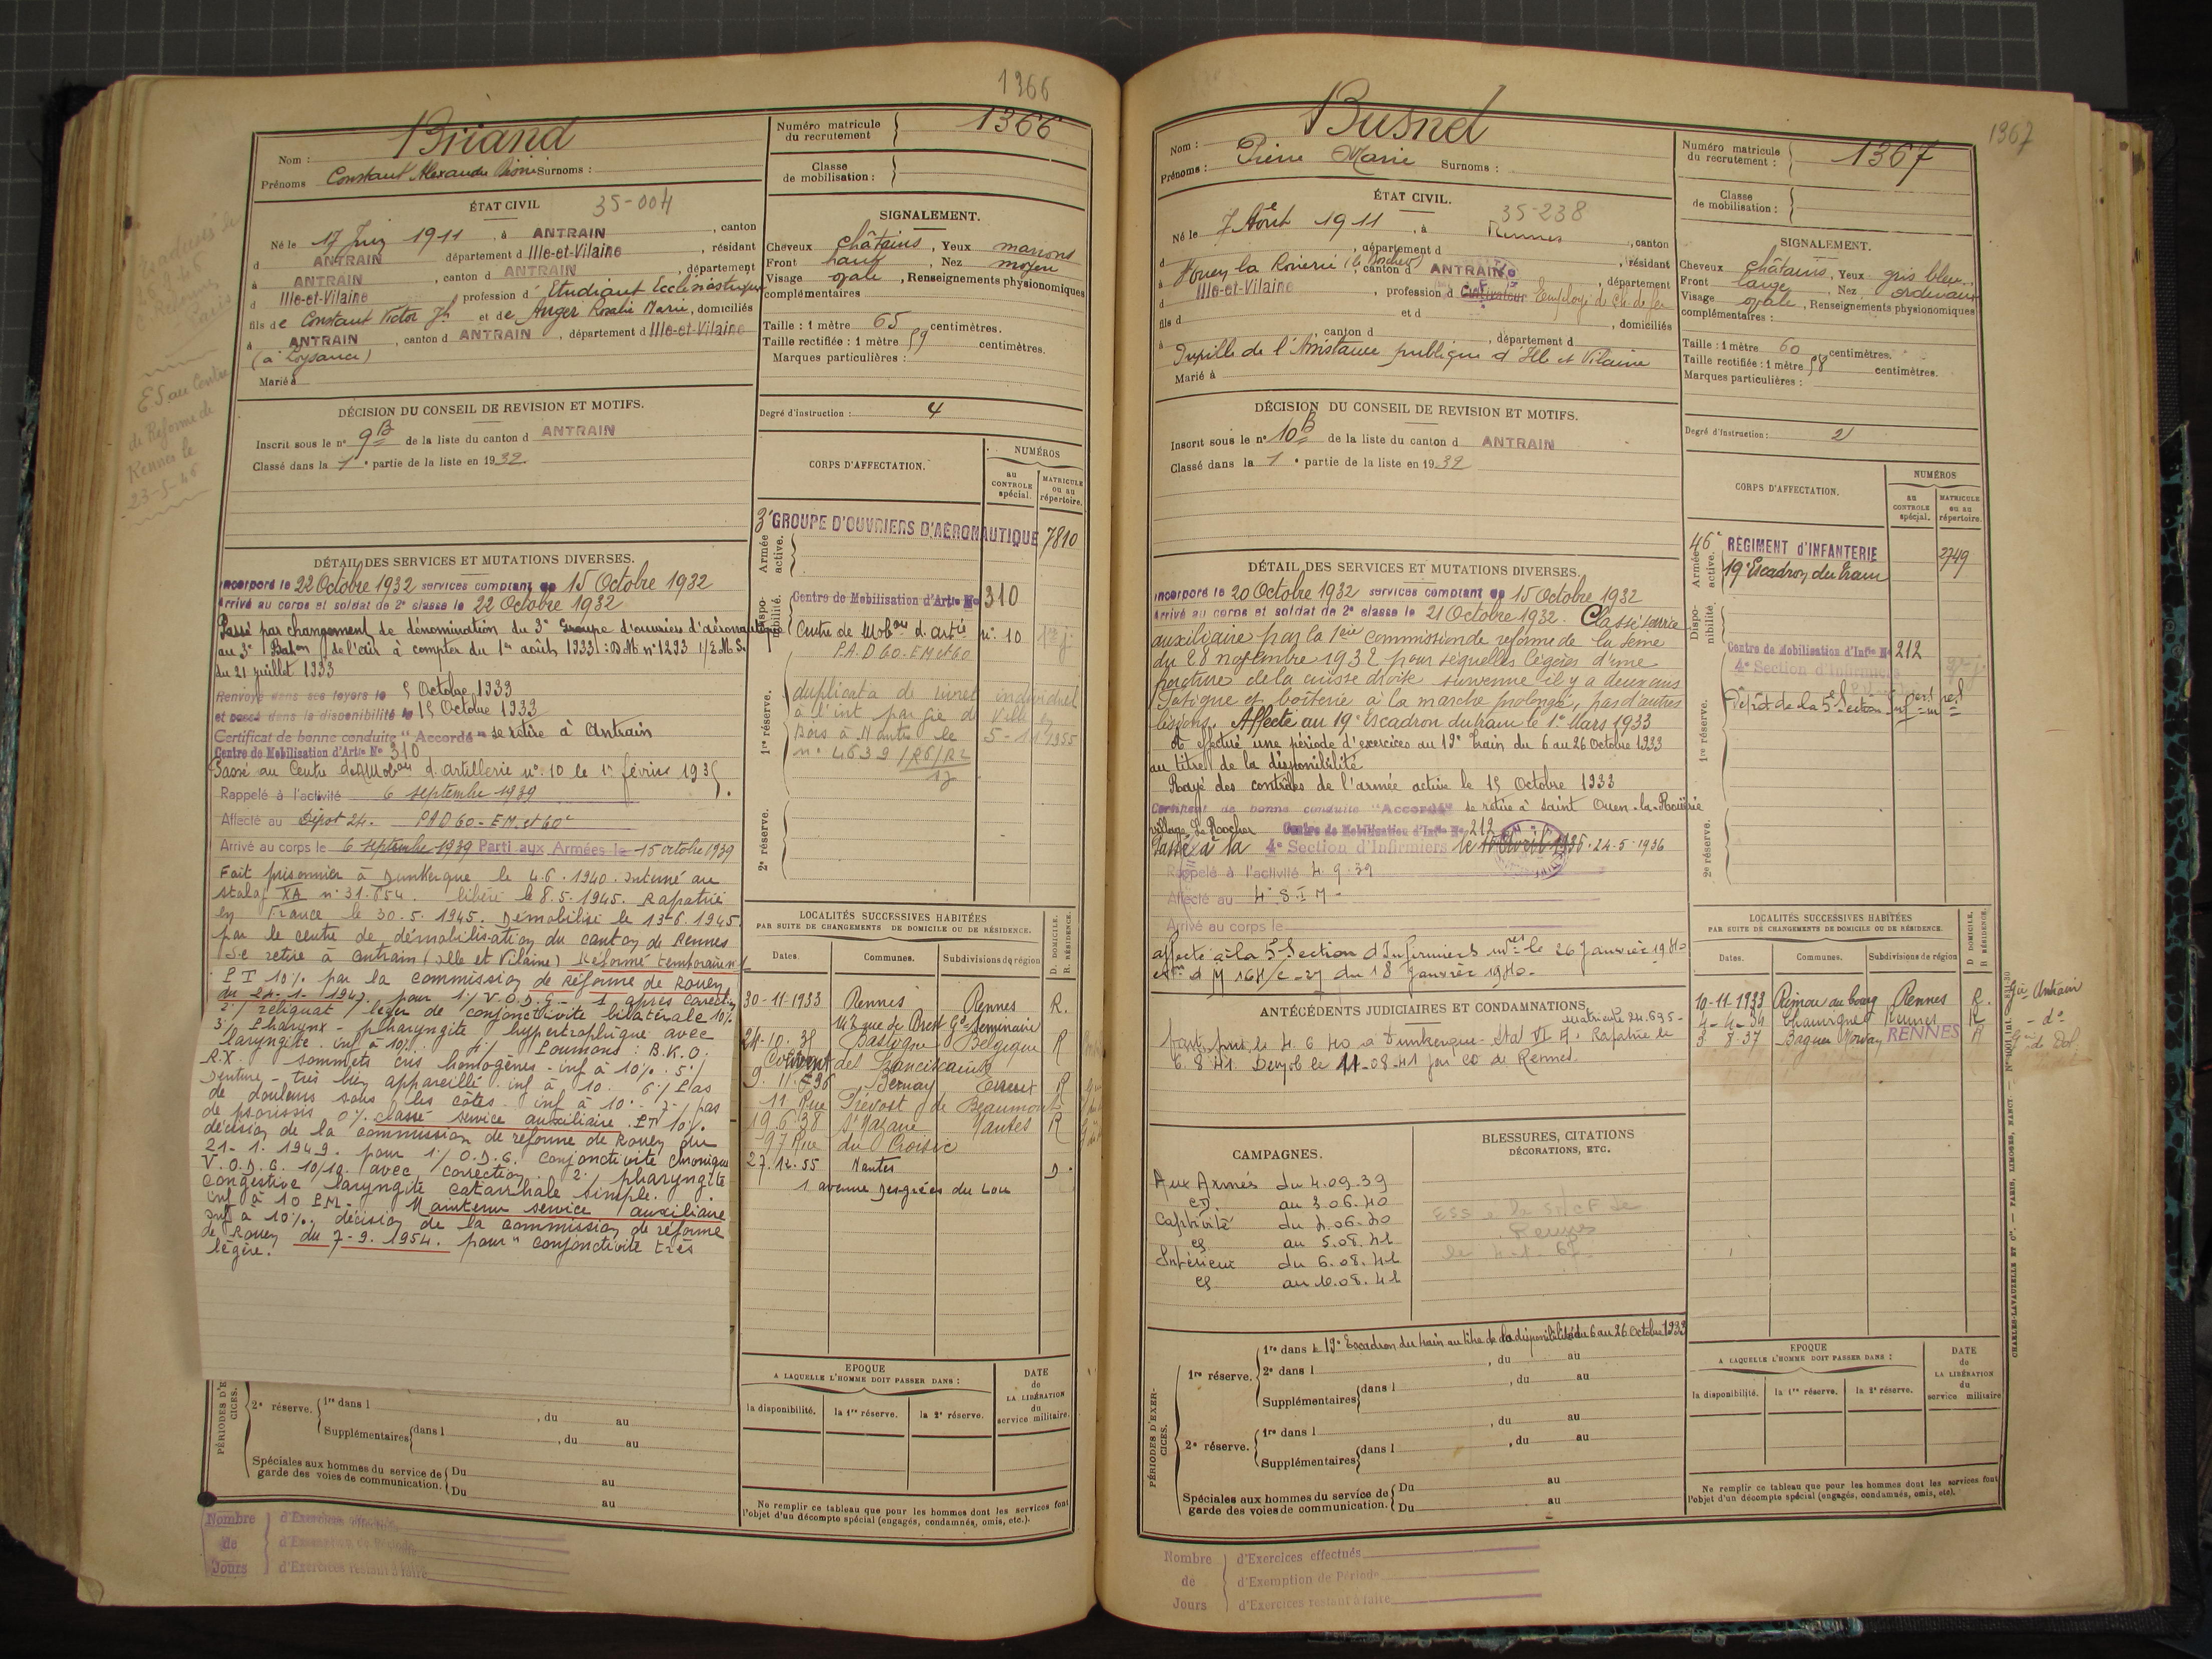 1366
Nom : Briand
Prénoms Constant Alexandre Surnoms :
Numéro matricule du recrutement 1366
Classe de mobilisation :
ÉTAT CIVIL 35-004
Né le 17 Juin 1911, à ANTRAIN, canton
d ANTRAIN département d Ille-et-Vilaine, résidant
à ANTRAIN, canton d ANTRAIN, département
d Ille-et-Vilaine profession d' Etudiant Ecclésiastique
fils de Constant Victor Jh et de Anger Rosalie Marie, domiciliés
à ANTRAIN, canton d ANTRAIN, département d Ille-et-Vilaine
(à Loysance)
Marié à
SIGNALEMENT.
Cheveux châtains, Yeux marrons
Front haut, Nez moyen
Visage ovale, Renseignements physionomiques
complémentaires
Taille : 1 mètre 65 centimètres.
Taille rectifiée : 1 mètre 59 centimètres.
Marques particulières :
Degré d'instruction : 4
DÉCISION DU CONSEIL DE REVISION ET MOTIFS.
Inscrit sous le n° 9 B de la liste du canton d ANTRAIN
Classé dans la 1e partie de la liste en 1932.
CORPS D'AFFECTATION.
NUMÉROS
au CONTROLE spécial.
MATRICULE ou au répertoire.
Armée active.
3e GROUPE D'OUVRIERS D'AÉRONAUTIQUE 7810
Disponibilité.
Centre de Mobilisation d'Artie No 310
Centre de Mobon d'artie n° 10
P.A.D 60 - EM et 60
1re réserve.
duplicata de livret individuel
à l'int par Gie de Ville en
Bois à Nantes le 5-11 1955
n° 4639 /R6/R2
2e réserve.
DÉTAIL DES SERVICES ET MUTATIONS DIVERSES.
Incorporé le 22 Octobre 1932 services comptant du 15 Octobre 1932
Arrivé au corps et soldat de 2e classe le 22 Octobre 1932
Passé par changement de dénomination du 3e Groupe d'ouvriers d'aéronautique
au 3e Baton de l'air à compter du 1er août 1933 : D.M. n° 1293 1/E.M.S.
du 21 juillet 1933
Renvoyé dans ses foyers le 5 Octobre 1933
et passé dans la disponibilité le 15 Octobre 1933
Certificat de bonne conduite "Accordé" se retire à Antrain
Centre de Mobilisation d'Artie No 310
Passé au Centre de Mobon d'artillerie n° 10 le 1er février 1935.
Rappelé à l'activité 6 septembre 1939
Affecté au Dépôt 24. PAD 60 - E.M. et 60e
Arrivé au corps le 6 septembre 1939 Parti aux Armées le 15 octobre 1939
Fait prisonnier à Dunkerque le 4.6.1940. Interné au
stalag XA n° 31.654. libéré le 8.5.1945. Rapatrié
en France le 30.5.1945. Démobilisé le 13-6.1945
par le centre de démobilisation du canton de Rennes
Se retire à Antrain (Ille et Vilaine) Réformé temporairemt
P T 10% par la commission de Réforme de Rouen
du 24-1-1947 pour 1/ V.O.D.G - 1 après correction
2/ reliquat léger de conjonctivite bilatérale 10%
3/ Pharynx - pharyngite hypertrophique avec
laryngite. inf à 10% 4/ Poumons : B.K.O.
R.X. sommets gris homogènes - inf à 10%. 5/
Denture - très bien appareillé. inf à 10. 6/ Pas
de douleurs sous les côtes. inf à 10%. 7/ pas
de psoriasis 0% classé service auxiliaire P.T. 10%
décision de la commission de réforme de Rouen du
21-1.1949. pour 1/ O.D.G. conjonctivite chronique
V.O.D.G. 10/10 avec correction. 2/ pharyngite
congestive laryngite catarrhale simple.
inf à 10 P.M. Maintenu service auxiliaire
inf à 10%. décision de la commission de réforme
de Rouen du 7-9.1954. pour "conjonctivite très
légère.
LOCALITÉS SUCCESSIVES HABITÉES
PAR SUITE DE CHANGEMENTS DE DOMICILE OU DE RÉSIDENCE.
Dates. Communes. Subdivisions de région D. DOMICILE. R. RÉSIDENCE.
30-11-1933 Rennes Rennes R.
rue de Brest Gd Seminaire
24-10.35 Bastogne Belgique R
Couvent des Franciscains
9.11.E36 Bernay R
11 Rue Prévost de Beaumont
19.6.38 St Nazaire Nantes R
97 Rue du Croisic
27.12.55 Nantes D.
1 avenue Desgrées du Lou
PÉRIODES D'EXERCICES.
2e réserve. 1re dans l , du au
Supplémentaires dans l , du au
Spéciales aux hommes du service de garde des voies de communication. Du au
Du au
EPOQUE
A LAQUELLE L'HOMME DOIT PASSER DANS :
la disponibilité. la 1re réserve. la 2e réserve.
DATE de LA LIBÉRATION du service militaire.
Ne remplir ce tableau que pour les hommes dont les services font
l'objet d'un décompte spécial (engagés, condamnés, omis, etc.).
Nombre de Jours
d'Exercices effectués
d'Exemption de Période
d'Exercices restant à faire
ES au Centre
de Réforme de
Rennes le
23-5-46
1367
Nom : Busnel
Prénoms : Pierre Marie Surnoms :
Numéro matricule du recrutement : 1367
Classe de mobilisation :
ÉTAT CIVIL. 35-238
Né le 7 Août 1911, à Rennes, canton
d , département d , résidant
à St Ouen la Rouerie (le Rocher), canton d ANTRAIN, département
d Ille-et-Vilaine, profession d Cultivateur Employé de Ch. de fer
fils d et d , domiciliés
à , canton d , département d
Pupille de l'Assistance publique d'Ille et Vilaine
Marié à
SIGNALEMENT.
Cheveux châtains, Yeux gris bleu
Front large, Nez ordinaire
Visage ovale, Renseignements physionomiques
complémentaires :
Taille : 1 mètre 60 centimètres.
Taille rectifiée : 1 mètre 58 centimètres.
Marques particulières :
Degré d'instruction : 2
DÉCISION DU CONSEIL DE REVISION ET MOTIFS.
Inscrit sous le n° 10 B de la liste du canton d ANTRAIN
Classé dans la 1e partie de la liste en 1932
CORPS D'AFFECTATION.
NUMÉROS
au CONTROLE spécial.
MATRICULE ou au répertoire.
Armée active.
46e RÉGIMENT d'INFANTERIE 2749
19e Escadron du Train
Disponibilité.
Centre de Mobilisation d'Infie No 212
4e Section d'Infirmiers
1re réserve.
Dépôt de la 5e Section
2e réserve.
DÉTAIL DES SERVICES ET MUTATIONS DIVERSES.
Incorporé le 20 Octobre 1932 services comptant du 15 Octobre 1932
Arrivé au corps et soldat de 2e classe le 21 Octobre 1932. Classé service
auxiliaire par la 1ère commission de réforme de la Seine
du 28 novembre 1932 pour séquelles légères d'une
fracture de la cuisse droite survenue il y a deux ans
Fatigue et boiterie à la marche prolongée, pas d'autres
lésions. Affecté au 19e Escadron du train le 1er Mars 1933
A effectué une période d'exercices au 19e Train du 6 au 26 Octobre 1933
au titre de la disponibilité
Rayé des contrôles de l'armée active le 15 Octobre 1933
Certificat de bonne conduite "Accordé" se retire à Saint Ouen-la-Rouërie
village Le Rocher Centre de Mobilisation d'Infie No 212
Passé à la 4e Section d'Infirmiers le 15 Avril 1935. 24-5-1936
Rappelé à l'activité 4.9.39
Affecté au 4e S.I.M.
Arrivé au corps le
affecté à la 5e Section d'Infirmiers mres le 26 Janvier 1940
D M 164/C-27 du 18 Janvier 1940.
ANTÉCÉDENTS JUDICIAIRES ET CONDAMNATIONS.
Matricule 24.695-
fait pris. le 4.6.40 à Dunkerque - Stal VI A. Rapatrié le
6.8.41. Demob le 11-08-41 par CD de Rennes.
CAMPAGNES.
Aux Armées du 4.09.39
CD. au 3.06.40
Captivité du 4.06.40
CS au 5.08.41
Intérieur du 6.08.41
CS au 10.08.41
BLESSURES, CITATIONS
DÉCORATIONS, ETC.
ESS à la SNCF de
Rennes
LOCALITÉS SUCCESSIVES HABITÉES
PAR SUITE DE CHANGEMENTS DE DOMICILE OU DE RÉSIDENCE.
Dates. Communes. Subdivisions de région D DOMICILE. R RÉSIDENCE.
10-11-1933 Rimou au bourg Rennes R. Gie Antrain
4-4-34 Chauvigné Rennes R - do
3 8-37 Baguer Morvan RENNES R Gie de Dol.
PÉRIODES D'EXERCICES.
1re réserve. 1re dans le 19e Escadron du train au titre de la disponibilité du 6 au 26 Octobre 1933
2e dans l , du au
Supplémentaires dans l , du au
2e réserve. 1re dans l , du au
Supplémentaires dans l , du au
Spéciales aux hommes du service de garde des voies de communication. Du au
Du au
EPOQUE
A LAQUELLE L'HOMME DOIT PASSER DANS :
la disponibilité. la 1re réserve. la 2e réserve.
DATE de LA LIBÉRATION du service militaire
Ne remplir ce tableau que pour les hommes dont les services font
l'objet d'un décompte spécial (engagés, condamnés, omis, etc).
CHARLES-LAVAUZELLE ET Cie. — PARIS, LIMOGES, NANCY.
Nombre de Jours
d'Exercices effectués
d'Exemption de Période
d'Exercices restant à faire